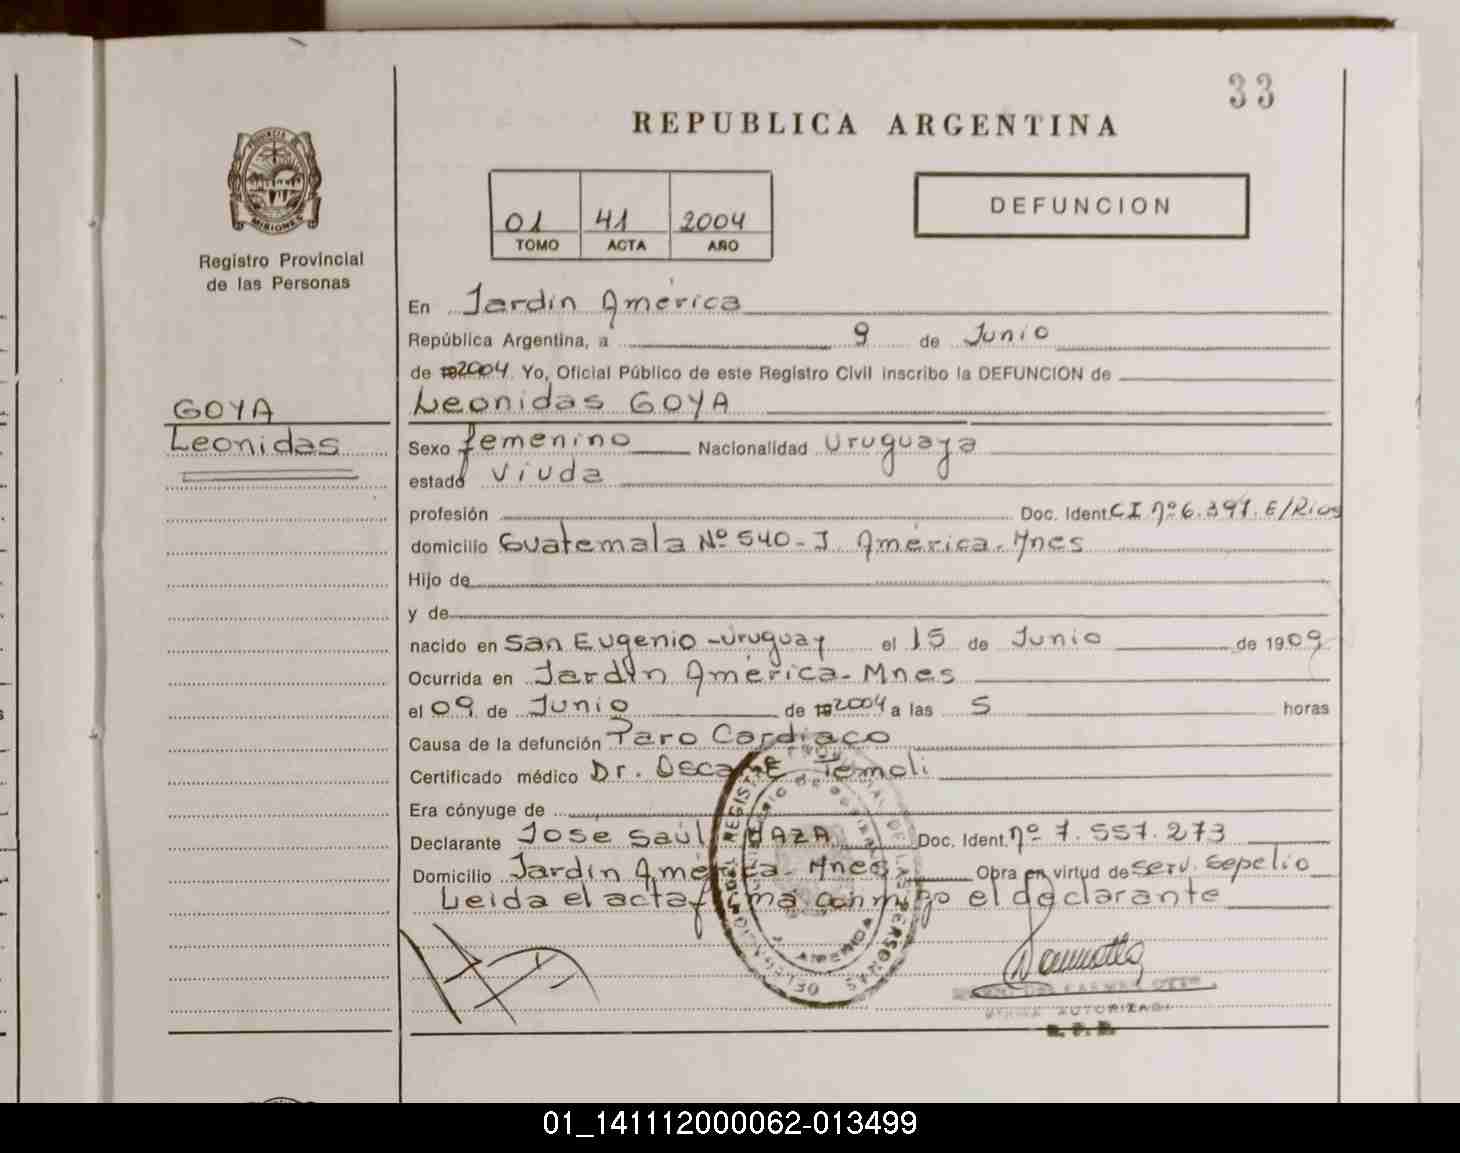 33
REPUBLICA ARGENTINA
PROVINCIA DE MISIONES
Registro Provincial
de las Personas
01 41 2004
TOMO ACTA AÑO
DEFUNCION
En Jardín América
República Argentina, a 9 de Junio
de 2004. Yo, Oficial Público de este Registro Civil inscribo la DEFUNCION de
GOYA
Leonidas
Leonidas GOYA
Sexo femenino Nacionalidad Uruguaya
estado Viuda
profesión Doc. Ident. CI nº 6.391. E/Rios
domicilio Guatemala Nº 540 - J. América - Mnes
Hijo de
y de
nacido en San Eugenio - Uruguay el 15 de Junio de 1909
Ocurrida en Jardín América - Mnes
el 09 de Junio de 2004 a las 5 horas
Causa de la defunción Paro Cardíaco
Certificado médico Dr. Oscar E Temoli
Era cónyuge de
Declarante Jose Saúl DAZA Doc. Ident. nº 7.557.273
Domicilio Jardín América - Mnes Obra en virtud de serv. Sepelio
Leida el acta firma conmigo el declarante
DELEGACION DEL REGISTRO PROVINCIAL DE LAS PERSONAS
AMERICA
AUTORIZADA
R. P. P.
01_141112000062-013499